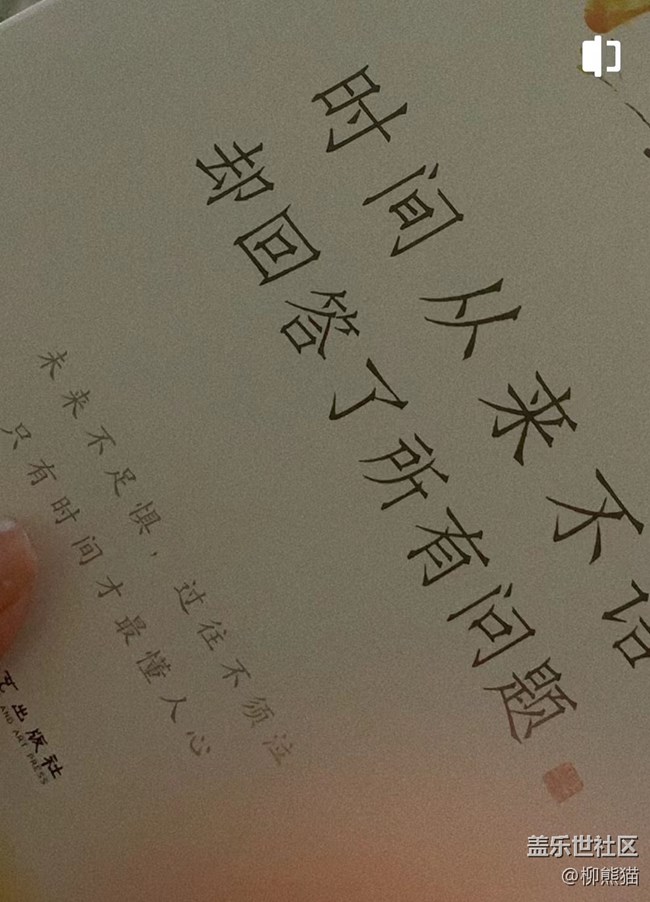 时间从来不语
却回答了所有问题
未来不足惧，过往不须泣
只有时间才最懂人心
艺出版社
AND ART PRESS
盖乐世社区
@柳熊猫